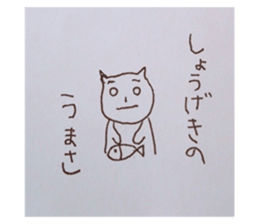 しょうげきの
うまさ